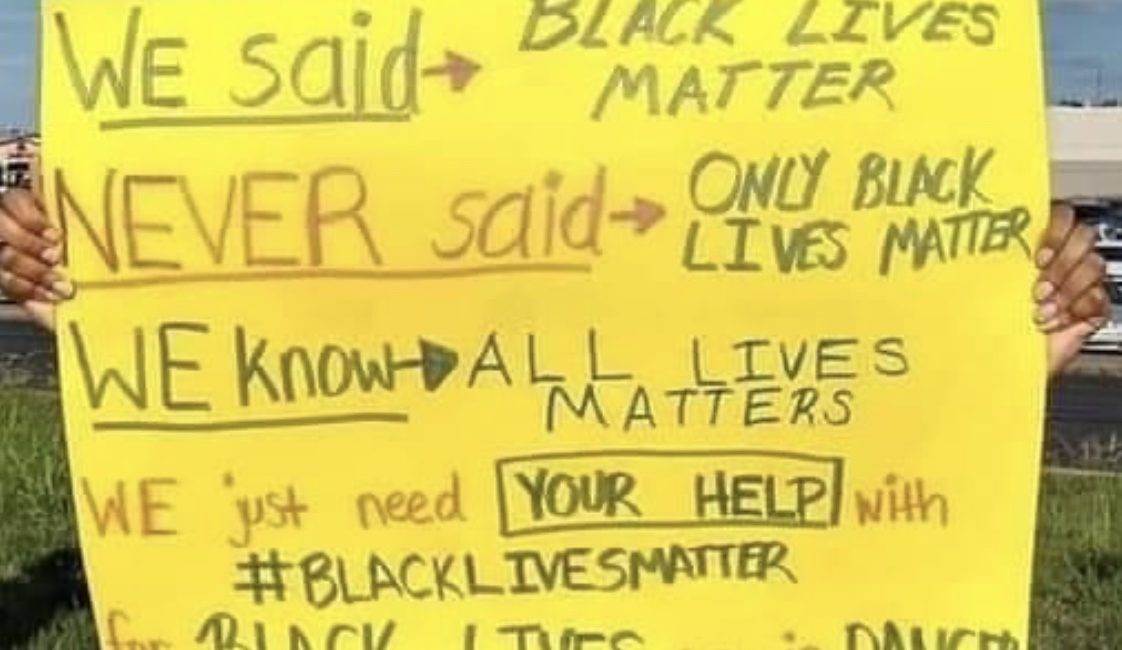 WE said→ BLACK LIVES
MATTER
NEVER said→ ONLY BLACK
LIVES MATTER
WE know→ ALL LIVES
MATTERS
WE just need YOUR HELP with
#BLACKLIVESMATTER
for BLACK LIVES